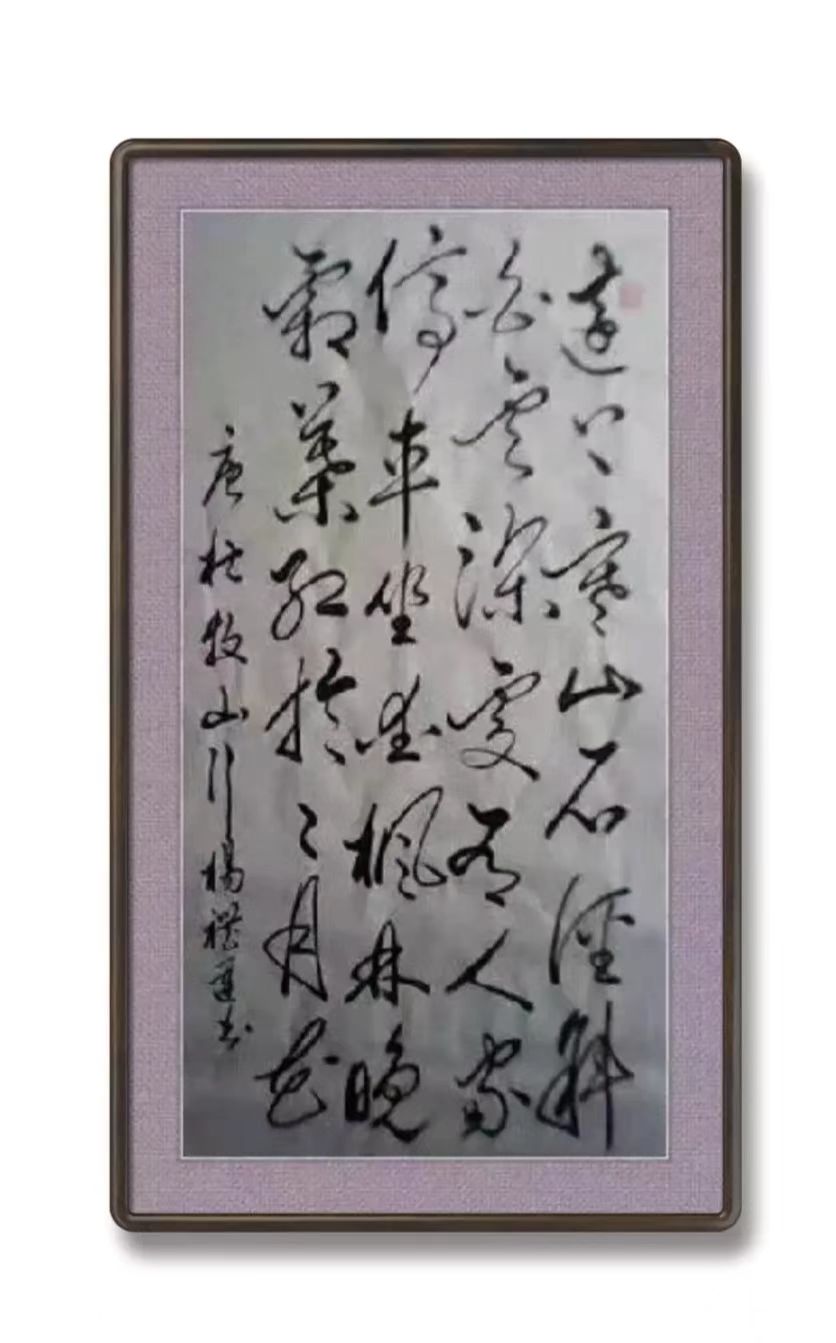 遠上寒山石徑斜
白雲深處有人家
停車坐愛楓林晚
霜葉紅於二月花
唐杜牧山行楊書